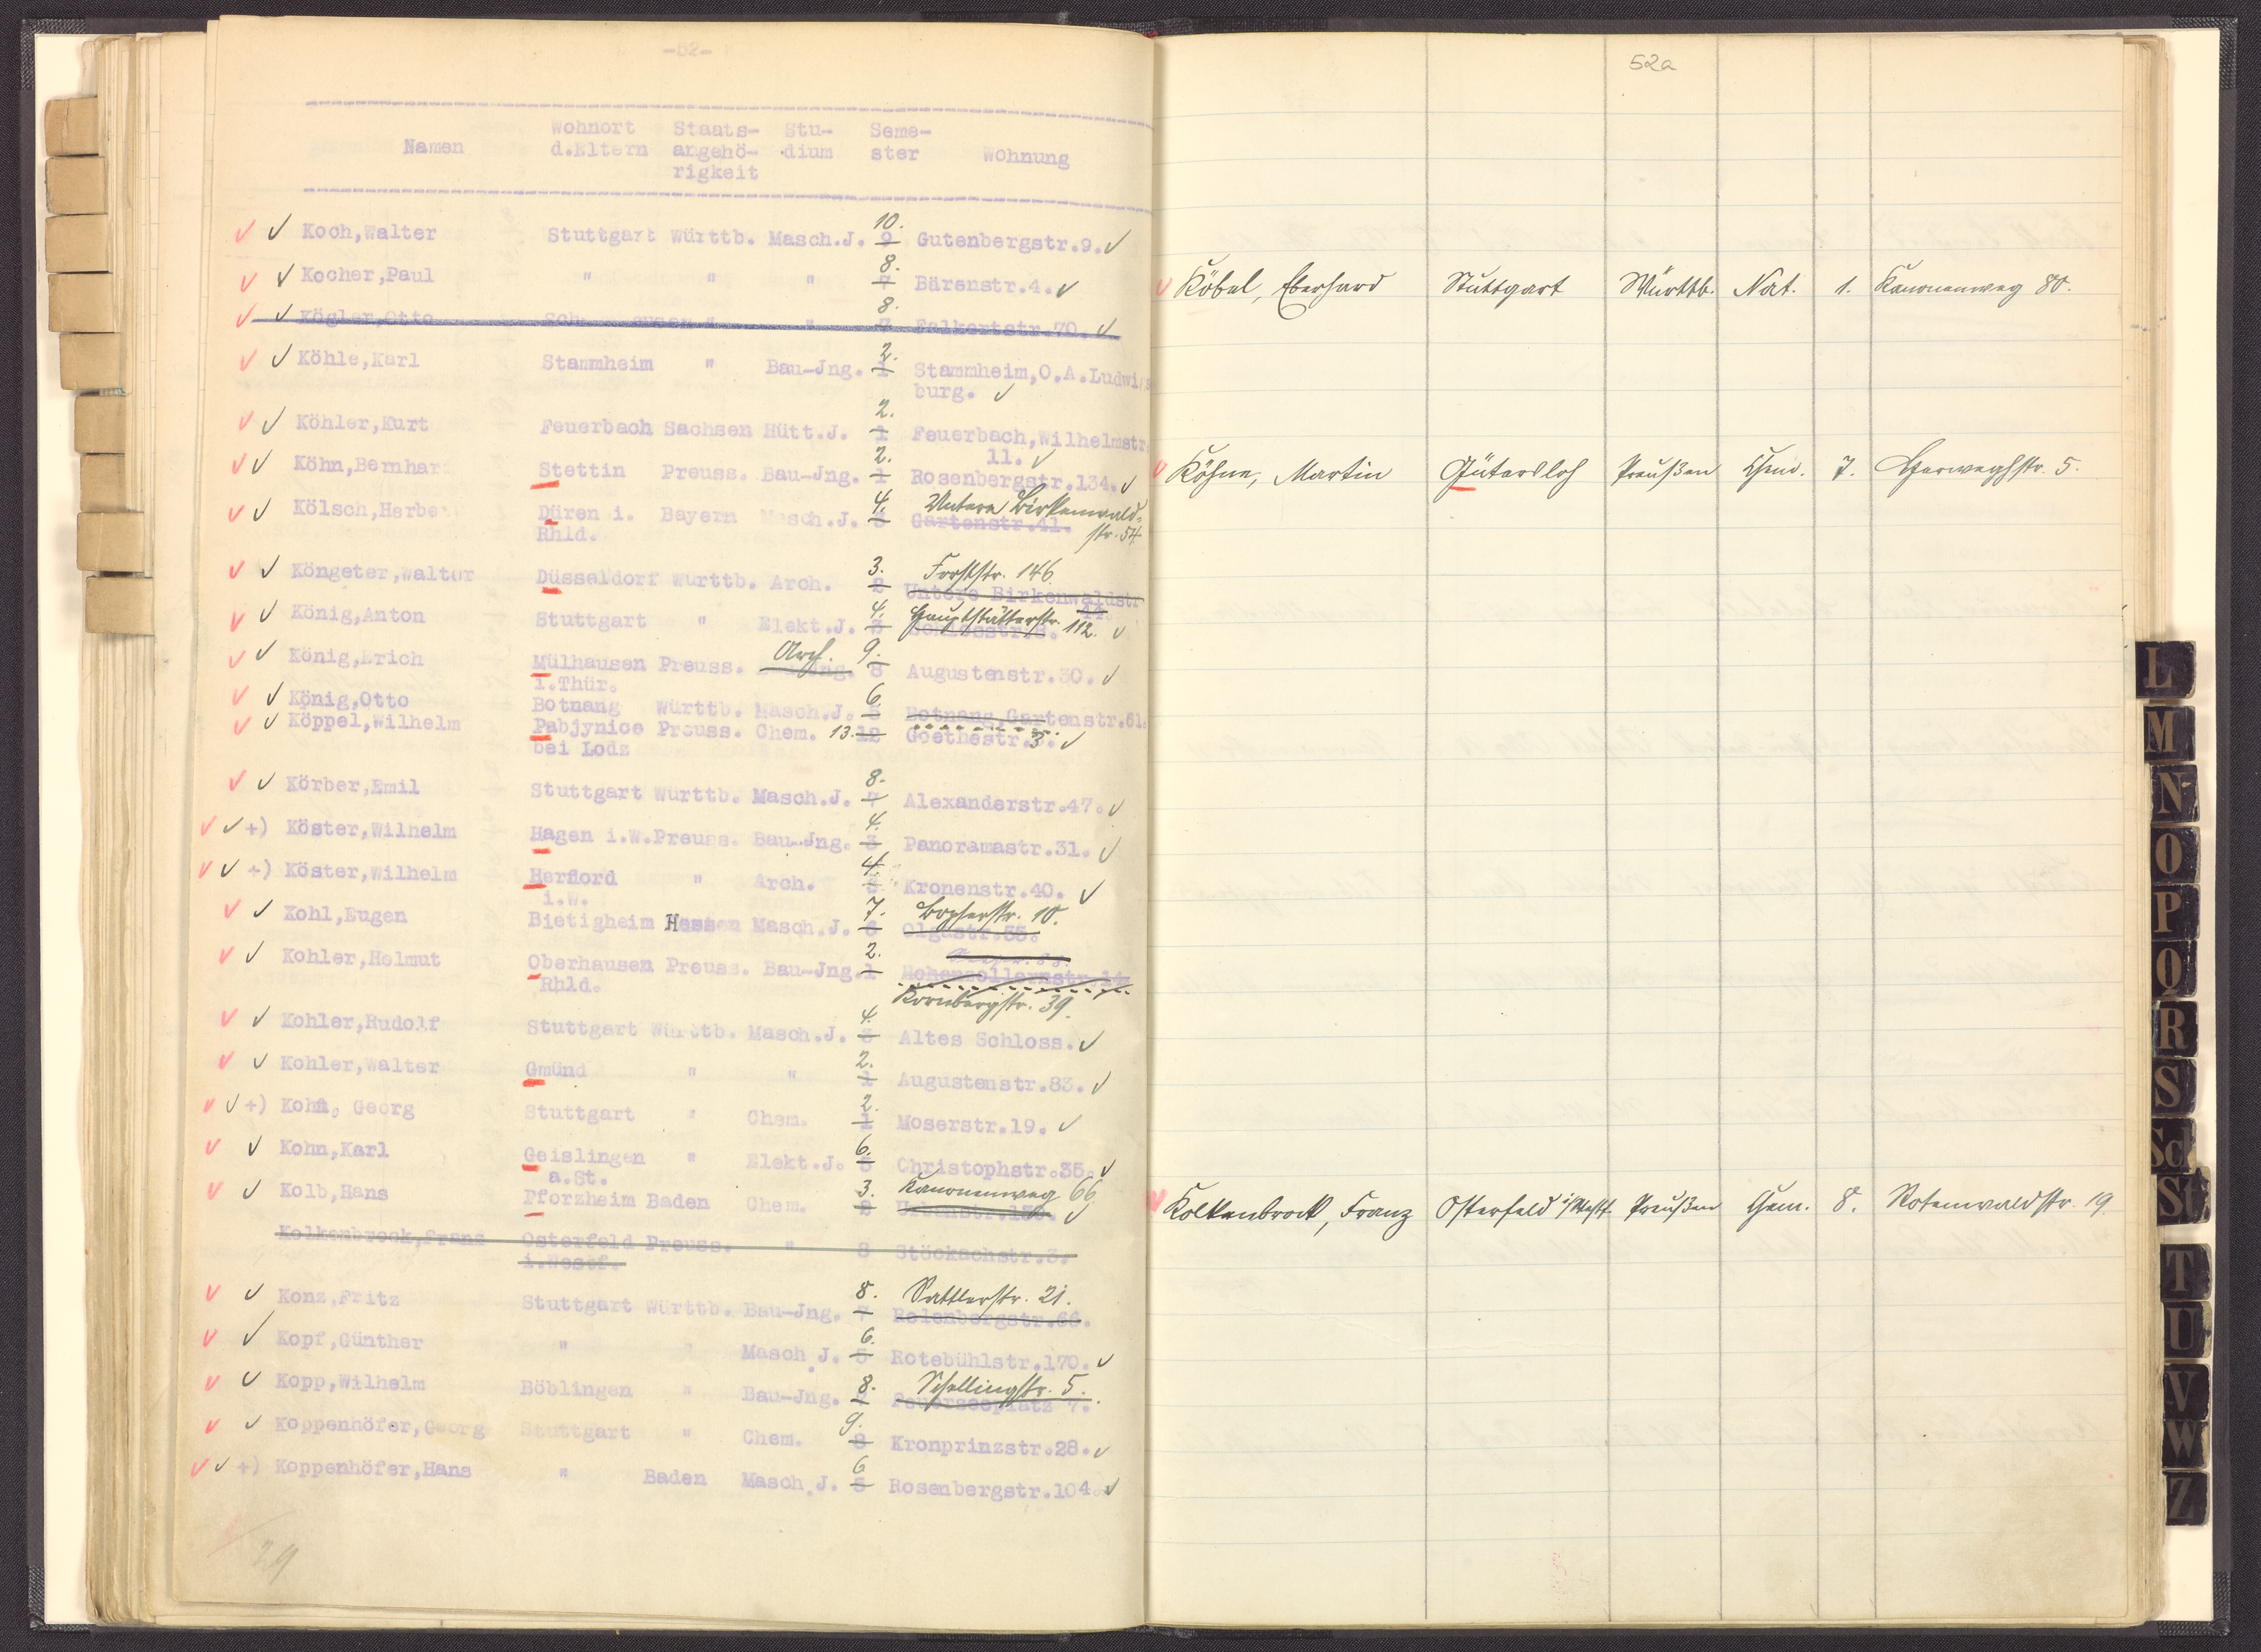 -52-
Namen Wohnort d.Eltern Staats-angehö-rigkeit Stu-dium Seme-ster Wohnung
✓ ✓ Koch,Walter Stuttgart Württb. Masch.J. 9 10. Gutenbergstr.9. ✓
✓ ✓ Kocher,Paul " " " 7 8. Bärenstr.4. ✓
✓ ✓ Kögler,Otto " " 7 8. Falkertstr.70. ✓
✓ ✓ Köhle,Karl Stammheim " Bau-Jng. 1 2. Stammheim,O.A.Ludwigs
burg. ✓
✓ ✓ Köhler,Kurt Feuerbach Sachsen Hütt.J. 1 2. Feuerbach,Wilhelmstr
11. ✓
✓ ✓ Köhn,Bernhar Stettin Preuss. Bau-Jng. 1 2. Rosenbergstr.134. ✓
✓ ✓ Kölsch,Herbe Düren i. Bayern Masch.J. 3 4. Gartenstr.41. Untere Birkenwald-
Rhld. str. 54
✓ ✓ Köngeter,Walter Düsseldorf Württb. Arch. 2 3. Forststr. 146.
Untere Birkenwaldstr
44.
✓ ✓ König,Anton Stuttgart " Elekt.J. 3 4. Hauptstätterstr. 112. ✓
✓ ✓ König,Erich Mülhausen Preuss. Arch. 8 9. Augustenstr.30. ✓
i.Thür.
✓ ✓ König,Otto Botnang Württb. Masch.J. 5 6. Botnang,Gartenstr.61.
✓ ✓ Köppel,Wilhelm Pabjynice Preuss. Chem. 13. 12 Goethestr.3. ✓
bei Lodz
✓ ✓ Körber,Emil Stuttgart Württb. Masch.J. 7 8. Alexanderstr.47. ✓
✓ ✓ +) Köster,Wilhelm Hagen i.W.Preuss. Bau-Jng. 3 4. Panoramastr.31. ✓
✓ ✓ +) Köster,Wilhelm Herford " Arch. 3 4. Kronenstr.40. ✓
i.W.
✓ ✓ Kohl,Eugen Bietigheim Hessen Masch.J. 6 7. Olgastr.35. Bopserstr. 10.
✓ ✓ Kohler,Helmut Oberhausen Preuss. Bau-Jng. 1 2. Hohenzollernstr.14
Rhld. Kornbergstr. 39.
✓ ✓ Kohler,Rudolf Stuttgart Württb. Masch.J. 3 4. Altes Schloss. ✓
✓ ✓ Kohler,Walter Gmünd " " 1 2. Augustenstr.83. ✓
✓ ✓ +) Kohn, Georg Stuttgart " Chem. 1 2. Moserstr.19. ✓
✓ ✓ Kohn,Karl Geislingen " Elekt.J. 5 6. Christophstr.35. ✓
a.St.
✓ ✓ Kolb,Hans Pforzheim Baden Chem. 2 3. Kanonenweg 66. ✓
Kolkenbrock,Franz Osterfeld Preuss. " 8 Stöckachstr.3.
i.Westf.
✓ ✓ Konz,Fritz Stuttgart Württb. Bau-Jng. 7 8. Sattlerstr. 21.
✓ ✓ Kopf,Günther " " Masch.J. 5 6. Rotebühlstr.170. ✓
✓ ✓ Kopp,Wilhelm Böblingen " Bau-Jng. 7 8. Feuerseeplatz 7. Schellingstr. 5.
✓ ✓ Koppenhöfer,Georg Stuttgart " Chem. 8 9. Kronprinzstr.28. ✓
✓ ✓ +) Koppenhöfer,Hans " Baden Masch.J. 5 6 Rosenbergstr.104. ✓
29
52a
✓ Köbel, Eberhard Stuttgart Württb. Nat. 1. Kanonenweg 80.
✓ Köhne, Martin Gütersloh Preußen Chem. 7. Herweghstr. 5.
✓ Kolkenbrock, Franz Osterfeld i/Westf. Preußen Chem. 8. Rotenwaldstr. 19.
L
M
N
O
P
Q
R
S
Sch
St
T
U
V
W
Z